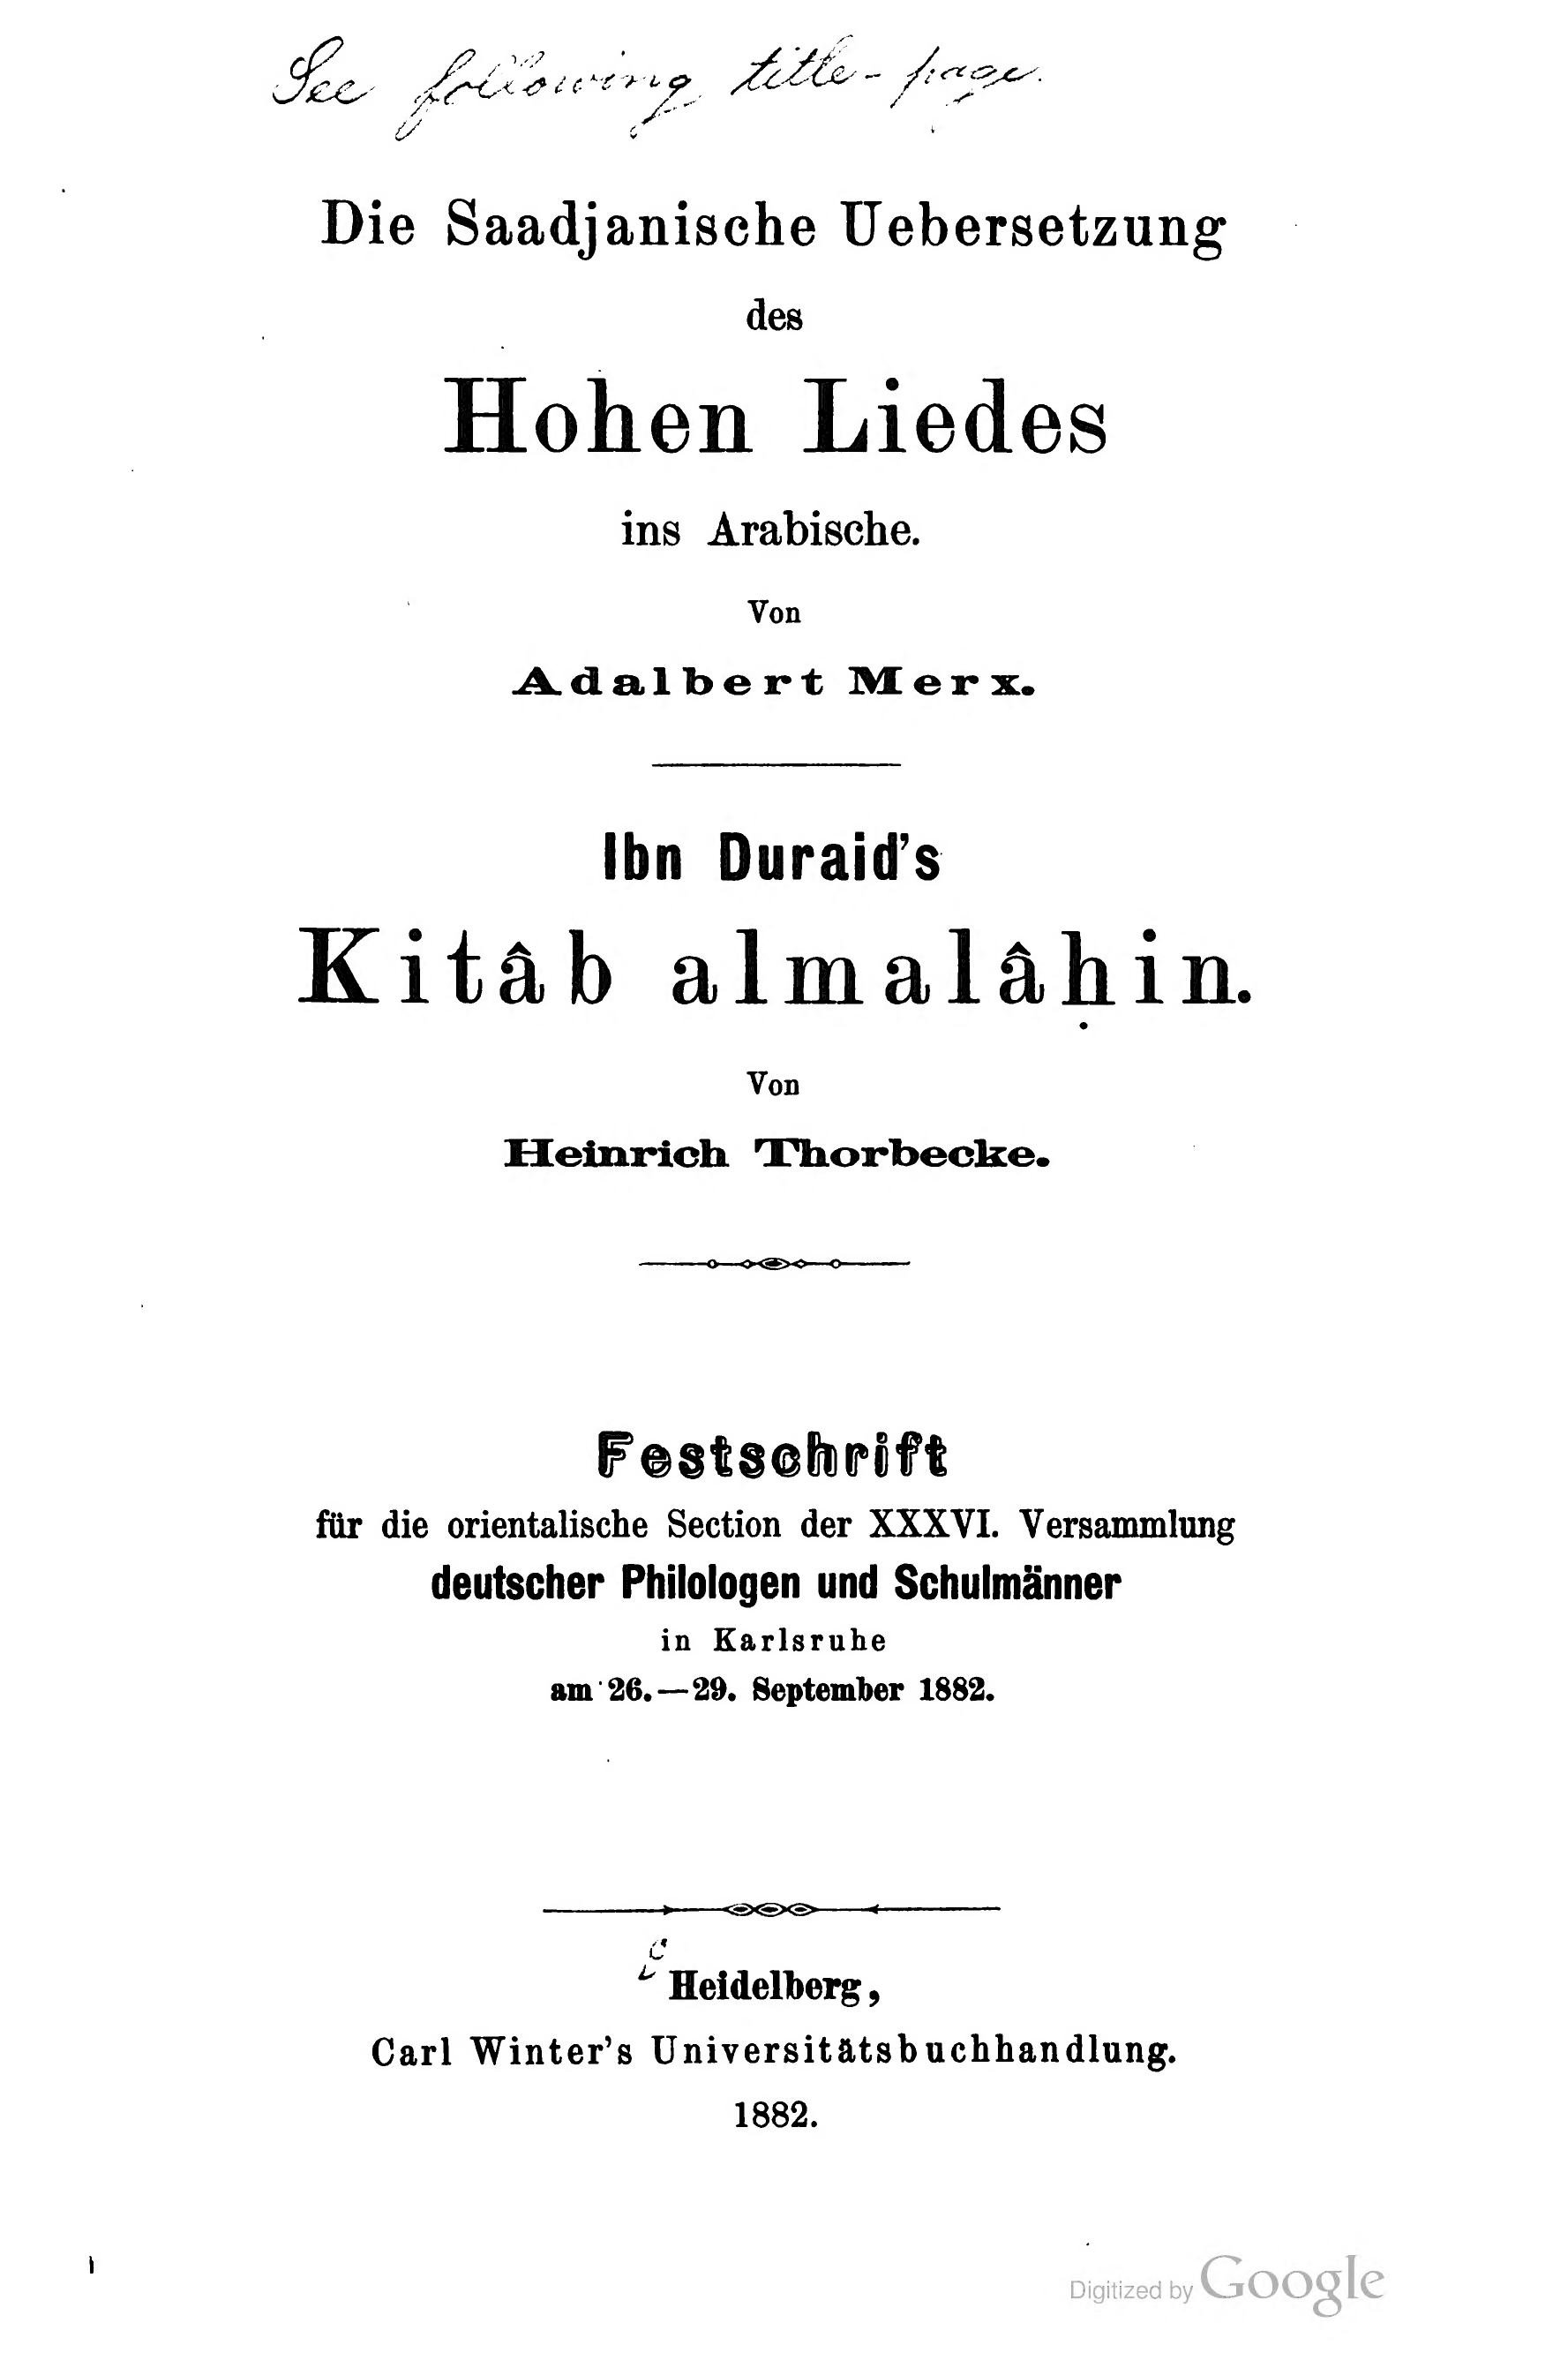 See following title-page.
Die Saadjanische Uebersetzung
des
Hohen Liedes
ins Arabische.
Von
Adalbert Merx.
Ibn Duraid's
Kitâb almalâḥin.
Von
Heinrich Thorbecke.
Festschrift
für die orientalische Section der XXXVI. Versammlung
deutscher Philologen und Schulmänner
in Karlsruhe
am 26.—29. September 1882.
Heidelberg,
Carl Winter's Universitätsbuchhandlung.
1882.
Digitized by Google